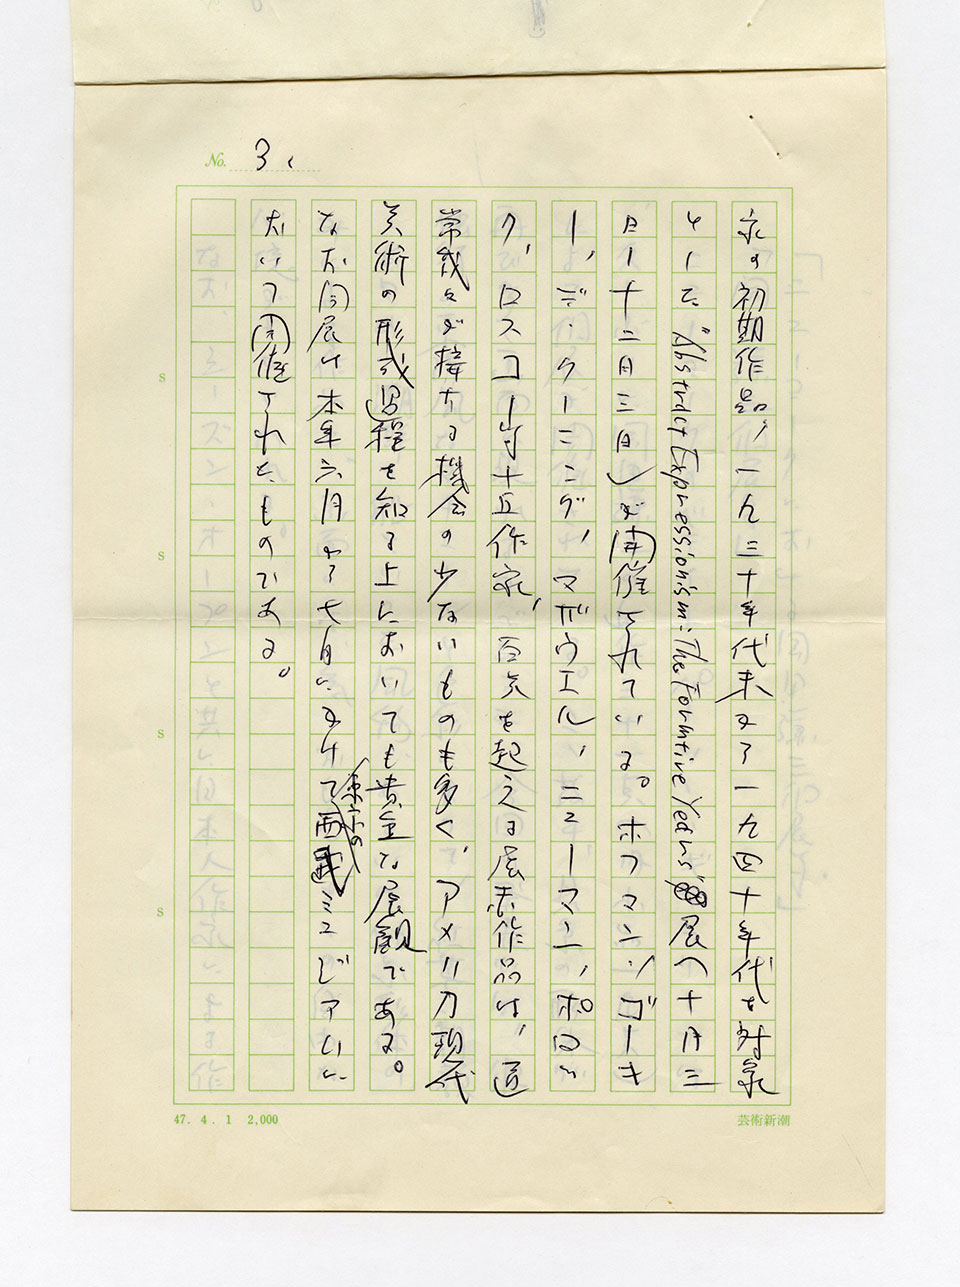 No. 3
家の初期作品、一九三十年代末から一九四十年代を対象
とした "Abstract Expressionism: The Formtive Years" 展(十月三
日ー十二月三日)が開催されている。ホフマン、ゴーキ
ー、デ・クーニング、マザウエル、ニューマン、ポロッ
ク、ロスコー等十五作家、百点を起える展示作品は、逼
常我々が接する機会の少ないものも多く、アメリカ現代
美術の形成過程を知る上においても貴重な展観である。
なお同展は本年六月から七月にかけて東京の西武ミュージアムに
おいて開催されたものである。
S
S
S
S
47. 4. 1 2,000
芸術新潮